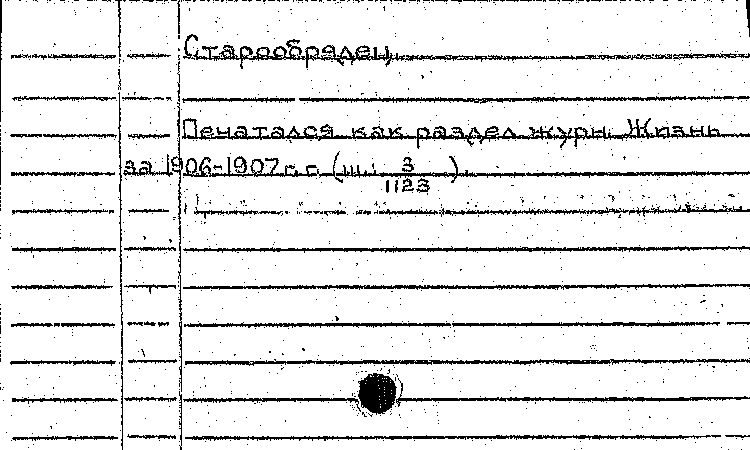 Старообрядец.
Печатался как раздел журн. Жизнь
за 1906-1907 г.г. (ш.: 3/1123).